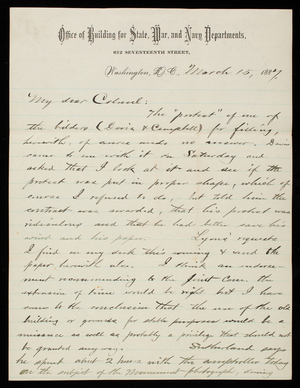 Office of Building for State, War, and Navy Departments,
612 SEVENTEENTH STREET,
Washington, D.C., March 15, 1887
My dear Colonel:
The "protest" of one of
the bidders (Davis & Campbell) for filling,
herewith, of course needs no answer. Davis
came to me with it on Saturday and
asked that I look at it and see if the
protest was put in proper shape, which of
course I refused to do, but told him the
contract was awarded, that his protest was
ridiculous and that he had better save his
wind and his paper. Lyons' requests
I find on my desk this morning & send the
paper herewith also. I think an endorse-
ment recommending to the
extension of time would be right but I have
come to the conclusion that the use of the old
building or grounds for stable purposes would be a
nuisance as well as, probably a privilege that should not
be granted any way. Sutherland says
he spent about 2 hours with the comptroller today
on the subject of the Monument photograph, during